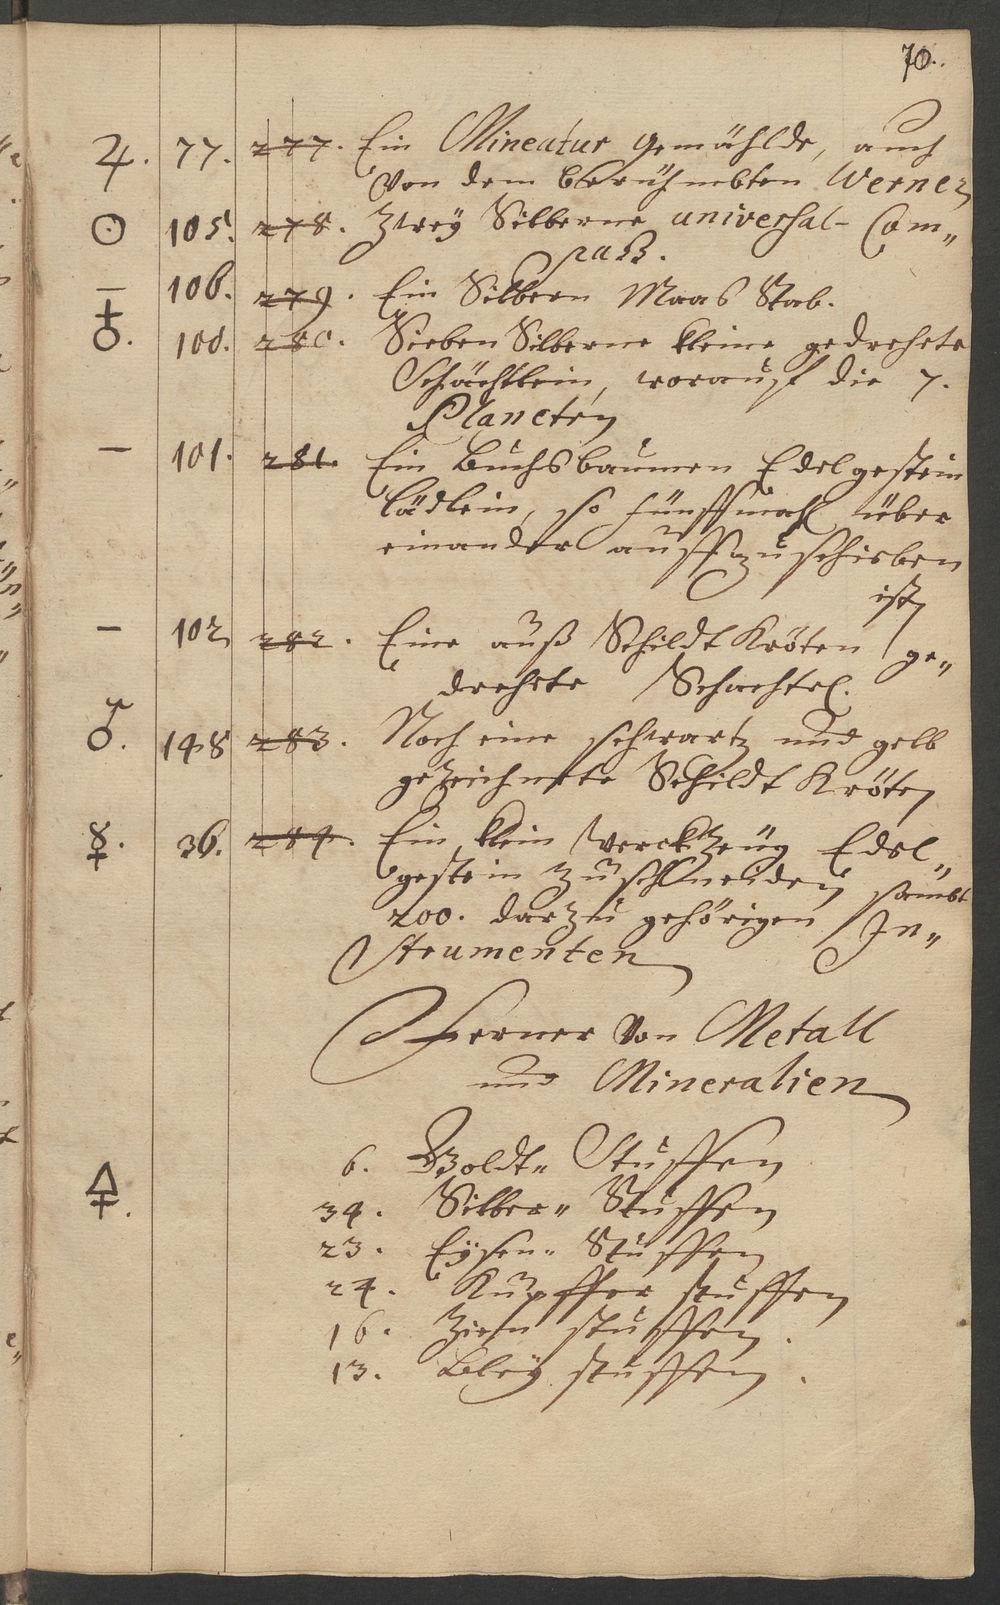 70.
♃. 77. 277. Ein Mineatur gemählde, auch
Von dem berühmbten Werner
☉ 105. 278. Zweÿ Silberne universal- Com„
paß.
— 106. 279. Ein Silbern Maas Stab.
♁. 100. 280. Sieben Silberne kleine gedrehete
Schächtlein, worauff die 7.
Planeten
— 101. 281. Ein Buchsbaumen Edelgestein
lädlein, so fünffmahl über
einander auffzuschieben
ist,
— 102 282. Eine auß Schildt Kröten ge„
drehete Schachtel.
♂. 148 283. Noch eine schwartz und gelb
gezeichnete Schildt Kröten
☿. 36. 284. Ein klein Werckzeüg Edel„
gestein zuschneiden sambt
200. darzu gehörigen In„
strumenten
Ferner Von Metall
und Mineralien
6. Goldt„ Stuffen
🜍. 34. Silber„ Stuffen
23. Eÿsen„ Stuffen
24. Kupffer stuffen
16. Zien stuffen.
13. Bleÿ stuffen.